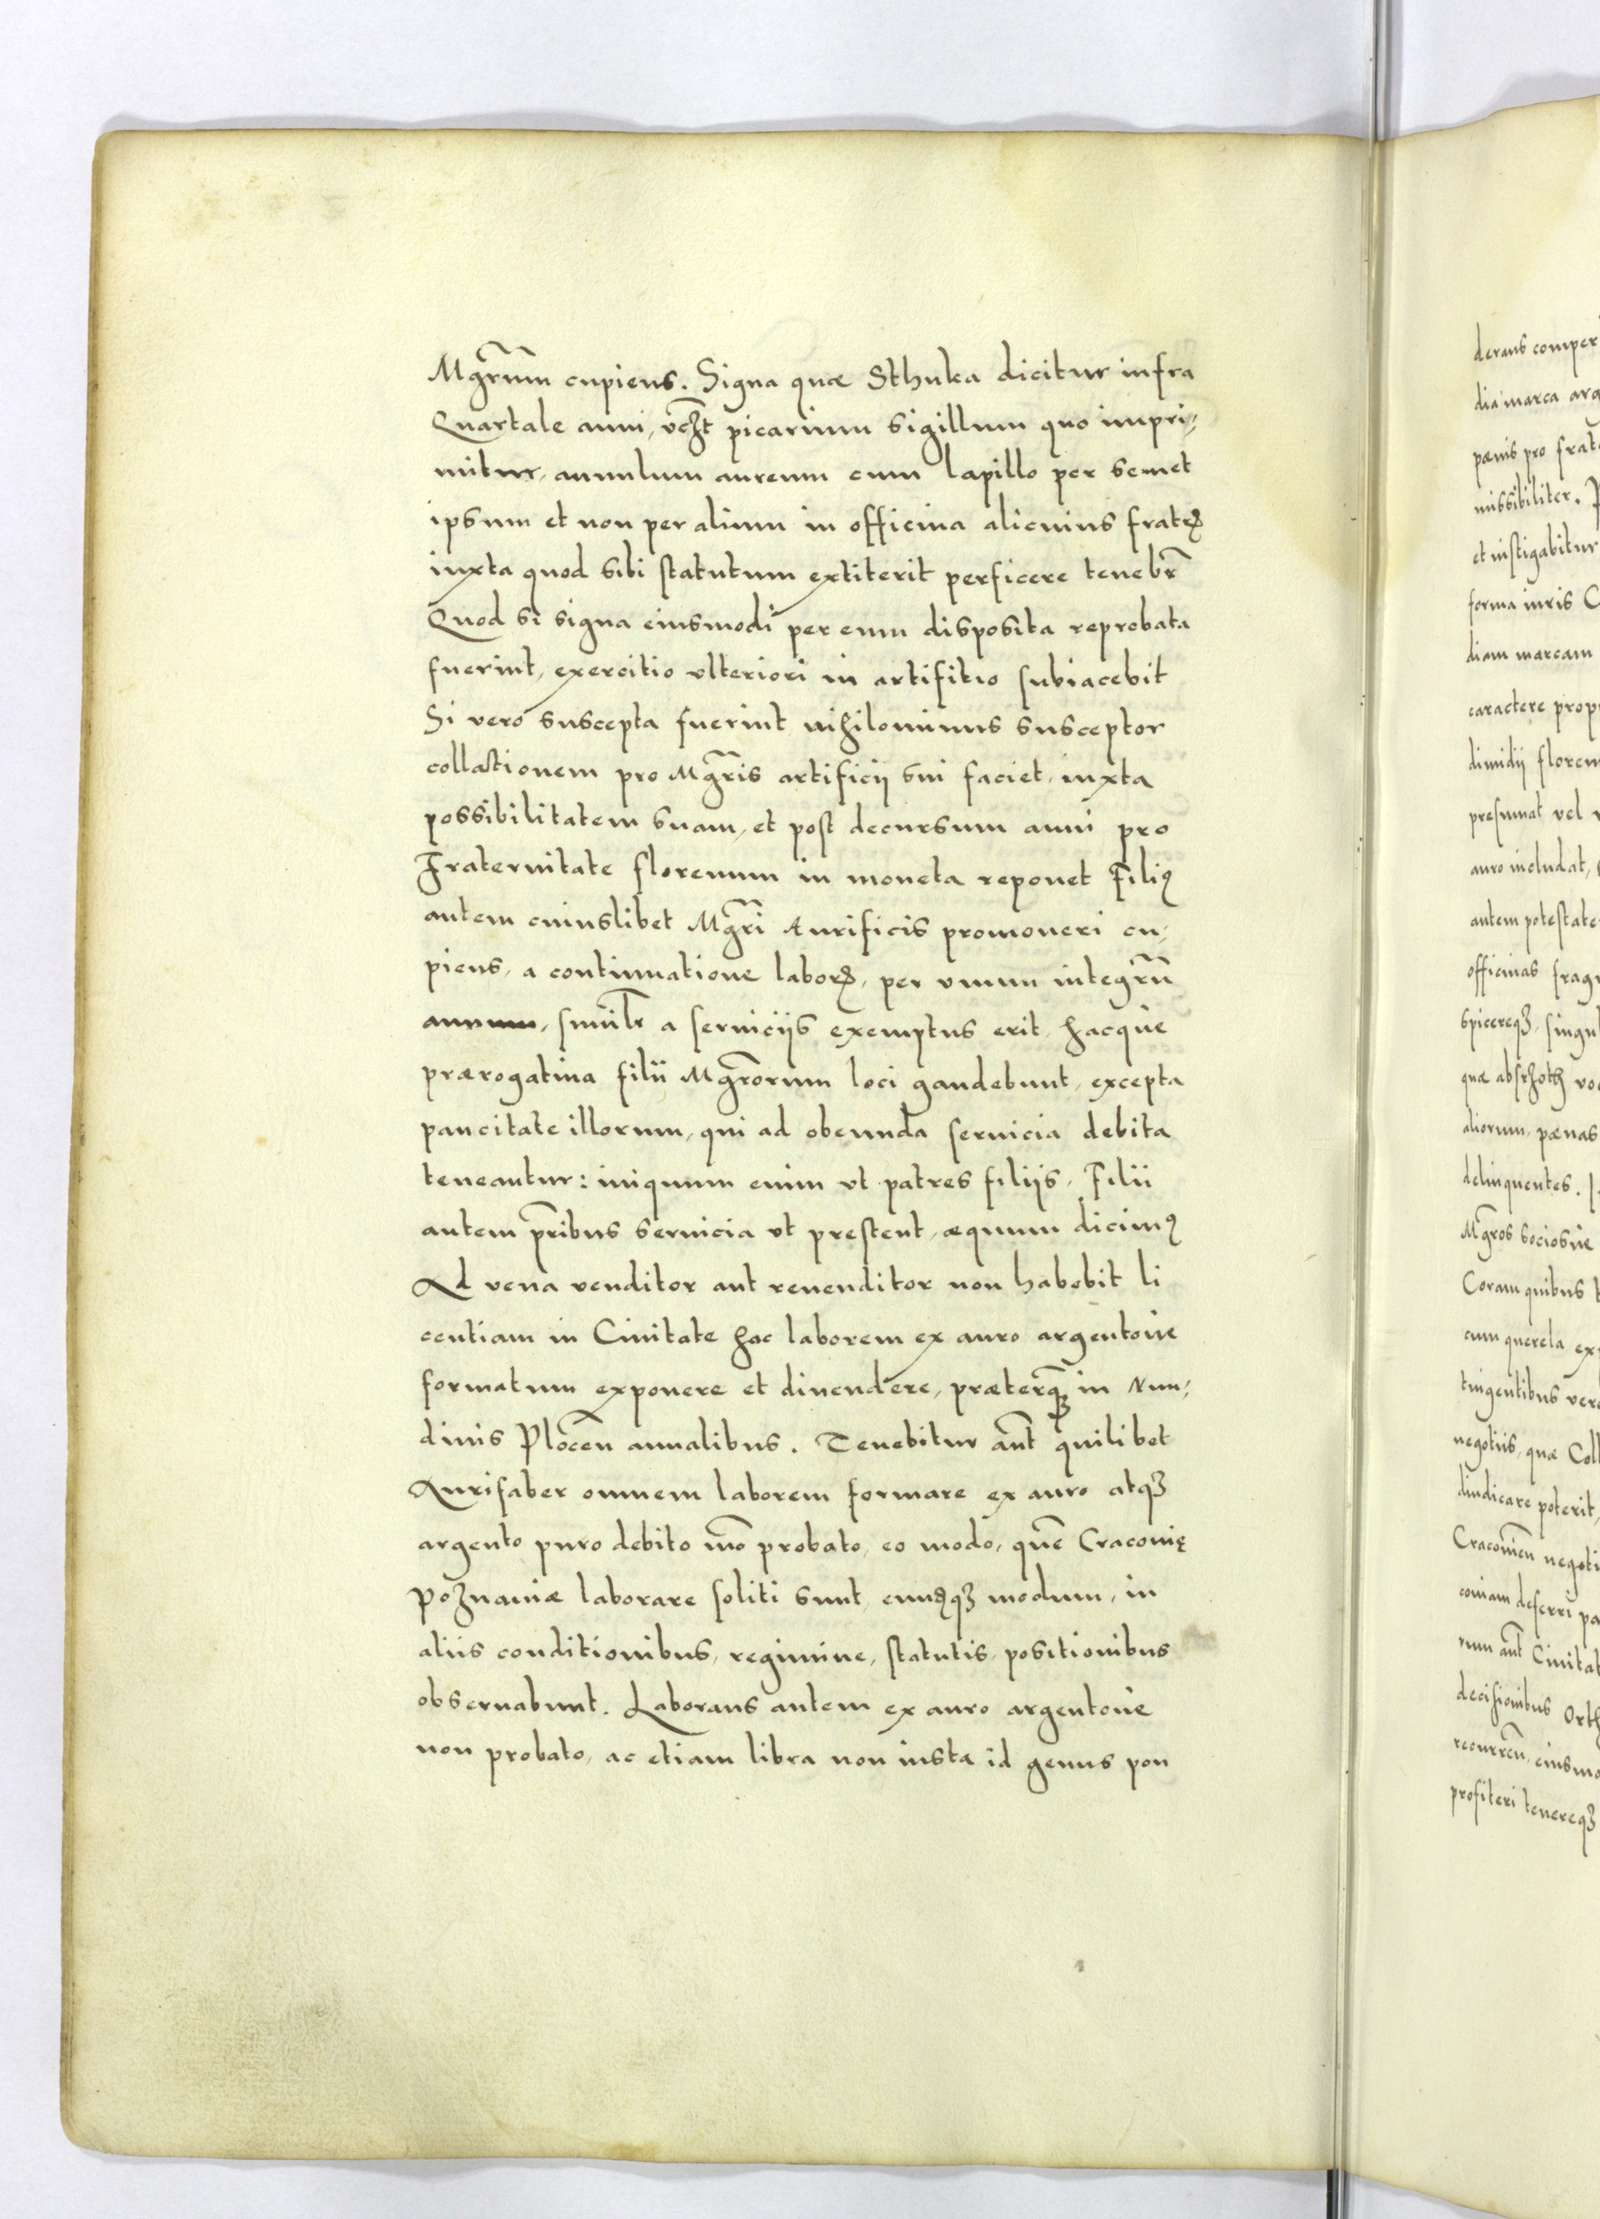 Mgr̃um cupiens. Signa quæ Sthuka dicitur infra
Quartale anni, vꝫt picarium sigillum quo impri,,
mitur, annulum aureum cum lapillo per semet
ipsum et non per alium in officina alicuius fratrꝫ
iuxta quod sibi statutum extiterit perficere tenebr̃
Quod si signa eiusmodi per eum disposita reprobata
fuerint, exercitio vlteriori in artifitio subiacebit
Si vero suscepta fuerint nihilominus susceptor
collactionem pro Mgr̃is artificij sui faciet, iuxta
possibilitatem suam, et post decursum anni pro
Fraternitate florenum in moneta reponet Filiꝰ
autem cuiuslibet Mgr̃i Aurificis promoueri cu,
piens, a continuatione laborꝫ, per vnum integrũ
annum, simil̃r a seruiciis exemptus erit, hacque
prærogatiua filii Mgr̃orum loci gaudebunt, excepta
paucitate illorum, qui ad obeunda seruicia debita
teneantur: iniquum enim vt patres filijs, Filii
autem pr̃ibus seruicia vt prestent, æquum dicimꝰ
Ad vena venditor aut reuenditor non habebit li
centiam in Ciuitate hac laborem ex auro argentoùe
formatum exponere et diuendere, præterqꝫ in Nun,
dinis Plocen̄ annalibus. Tenebitur aũt quilibet
Aurifaber omnem laborem formare ex auro atqꝫ
argento puro debito m̃o probato, eo modo, quẽ Cracouię
Poznaniæ laborare soliti sunt, eundqꝫ modum, in
aliis conditionibus, regimine, statutis, positionibus
obseruabunt. Laborans autem ex auro argentoùe
non probato, ac etiam libra non iusta id genus pon
derans comper
dia marca arg
pænis pro frat
missibiliter.
et instigabitur
forma iuris C
diam marcam
caractere prop
dimidij floren
presumat vel
auro includat,
autem potestate
officinas frag
spicereqꝫ, singul
quæ abschoth vo
aliorum, pænas
delinquentes.
Mgr̃os sociosùe
Coram quibus
cum querela ex
tingentibus ver
negotiis, quæ Coll
diiudicare poterit,
Cracouien̄ negoti
couiam deferri pa
rum aũt Ciuitat
decisionibus Orth
recurren̄, eiusmo
profiteri tenereqꝫ